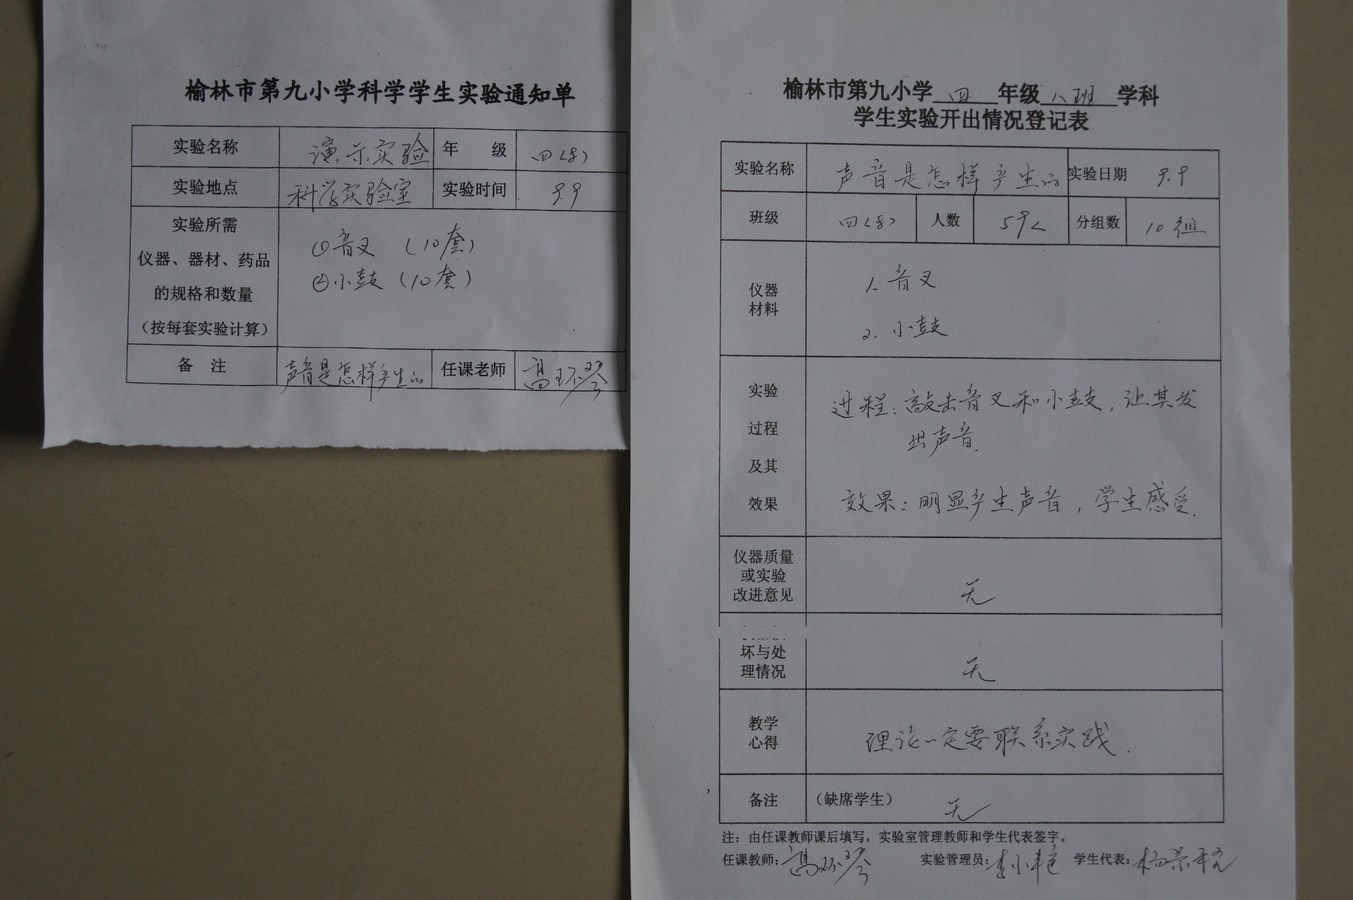 榆林市第九小学科学学生实验通知单
实验名称 演示实验 年 级 四(8)
实验地点 科学实验室 实验时间 9.9
实验所需
仪器、器材、药品
的规格和数量
（按每套实验计算）
①音叉（10套）
②小鼓（10套）
备 注 声音是怎样产生的 任课老师 高环琴
榆林市第九小学 四 年级 八班 学科
学生实验开出情况登记表
实验名称 声音是怎样产生的 实验日期 9.9
班级 四(8) 人数 59人 分组数 10组
仪器
材料
1. 音叉
2. 小鼓
实验
过程
及其
效果
过程：敲击音叉和小鼓，让其发
出声音.
效果：明显产生声音，学生感受.
仪器质量
或实验
改进意见
无
坏与处
理情况
无
教学
心得
理论一定要联系实践.
备注 （缺席学生） 无
注：由任课教师课后填写，实验室管理教师和学生代表签字。
任课教师：高环琴 实验管理员： 学生代表：